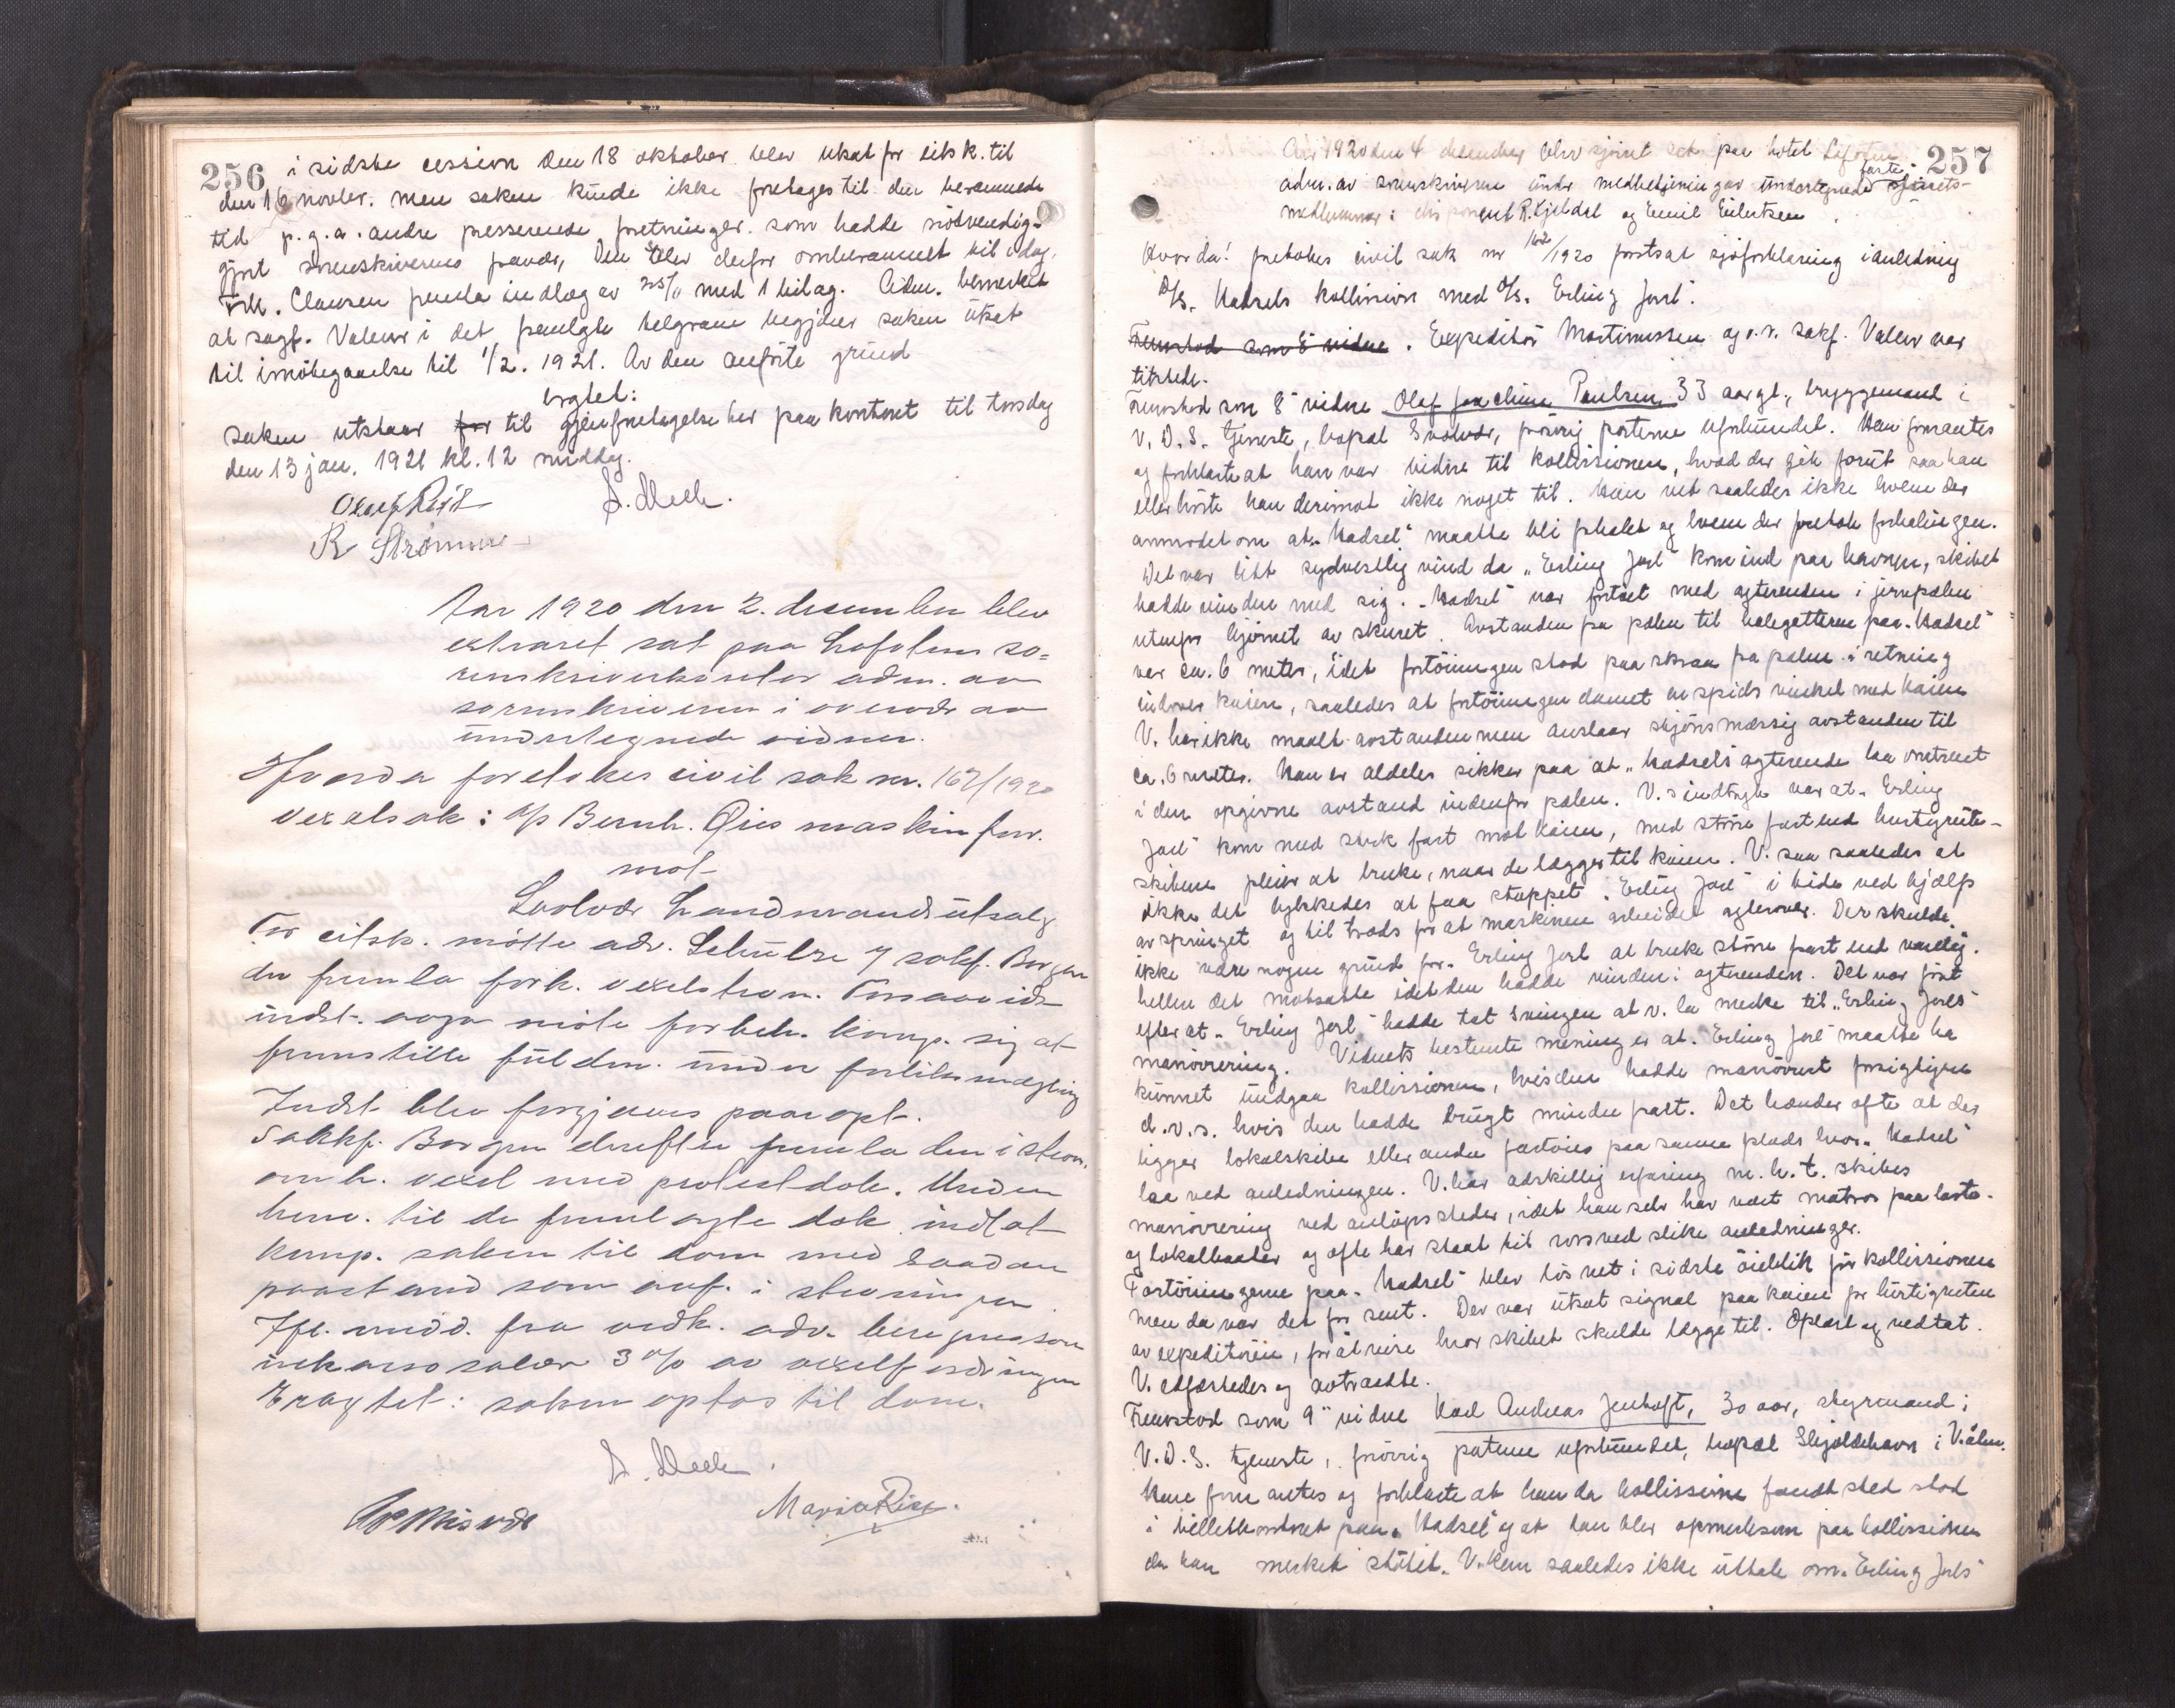 256
i sidste session den 18 oktober blev utsat for eitsk. til
den 16 novbr. men saken kunde ikke foretages til den berammede
tid p.g.a. andre presserende forretninger som hadde nødvendig-
gjort sorenskriverens fravær, Den blev derfor omberammet til idag.
Clausen fremla indlæg av 25/11 med 1 bilag. Adm. bemerket
at sagf. Valeur i det fremlagte telegram begjærer saken utsat
til imøtegaaelse til 1/2. 1921. Av den anførte grund
eragtet:
Saken utstaar for til gjenforetagelse her paa kontoret til torsdag
den 13 jan. 1921 kl. 12 middag.
R Strømme
Aar 1920 den 2. desember blev
extraret sat paa Lofotens so-
renskriverkontor adm. av
sorenskriveren i overvær av
undertegnede vidner.
Hvorda foretokes civil sak nr. 167/1920
vexelsak: A/S Bernh. Øies maskinforr.
mot
Svolvær Landmandsutsalg
For eitsk. møtte adv. Schultze v/ sakf. Borgen
der fremla fork. vexelstevn. Forsaavidt
indst. ogsaa møte forbeh. komp. sig at
fremstille fuldm. under forliksmægling
Indst. blev forgjæves paaropt.
Sakf. Borgen derefter fremla den i stevn.
omh. vexel med protestdok. Under
henv. til de fremlagte dok. indlot
komp. saken til dom med saadan
paastand som anf. i stevningen.
Ifl. medd. fra vedk. adv. beregnes som
inkassosalær 3 % av vexelfordringen
Eragtet: saken optas til dom.
Maria Riise.
257
Aar 1920 den 4 desember blev sjøret sat paa hotel Lofoten
adm. av sorenskriveren under medbetjening av undertegnede faste sjørets-
medlemmer: disponent R. Kjeldal og Emil Eilertsen.
Hvorda! foretokes civil sak nr 162/1920 fortsat sjøforklaring i anledning
D/S. Hadsels kollision med D/S. Erling Jarl.
Fremstod som 8 vidne. Expeditør Martinussen og o.r. sakf. Valeur var
tilstede.
Fremstod som 8' vidne Olaf Joachim Paulsen 33 aar gl., bryggemand i
V. D. S. tjeneste, bopæl Svolvær, forøvrig parterne uforbundet. Han formantes
og forklarte at han var vidne til kollissionen, hvad der gik forut saa han
eller hørte han derimot ikke noget til. Han vet saaledes ikke hvem der
anmodet om at "Hadsel" maatte bli forhalet og hvem der foretok forhalingen.
Det var litt sydvestlig vind da "Erling Jarl" kom ind paa havnen, skibet
hadde vinden med sig. "Hadsel" var fortøiet med agterenden i jernpælen
utenfor hjørnet av skuret. Avstanden fra pælen til halegatterne paa "Hadsel"
var ca. 6 meter, idet fortøiningen stod paa skraa fra pælen i retning
indover kaien, saaledes at fortøiningen dannet en spids vinkel med kaien
V. har ikke maalt avstanden men anslaar skjønsmæssig avstanden til
ca. 6 meter. Han er aldeles sikker paa at "Hadsels" agterende laa omtrent
i den opgivne avstand indenfor pælen. V.s indtryk var at "Erling
Jarl" kom med sterk fart mot kaien, med større fart end hurtigrute-
skibene pleier at bruke, naar de lægger til kaien. V. saa saaledes at
ikke det lykkedes at faa stoppet "Erling Jarl" i tide ved hjælp
av springet og til trods for at maskinen arbeidet agterover. Der skulde
ikke være nogen grund for "Erling Jarl" at bruke større fart end vanlig.
heller det motsatte idet den hadde vinden i agterenden. Det var først
efter at "Erling Jarl" hadde tat svingen at v. la merke til "Erling Jarls"
manøvrering. Vidnets bestemte mening er at "Erling Jarl" maatte ha
kunnet undgaa kollissionen, hvis den hadde manøvrert forsigtigere
d.v.s. hvis den hadde brugt mindre fart. Det hænder ofte at der
ligger lokalskibe eller andre fartøier paa samme plads hvor "Hadsel"
laa ved anledningen. V. har adskillig erfaring m. h. t. skibes
manøvrering ved anløpssteder, idet han selv har vært matros paa laste-
og lokalbaater og ofte har staat til rors ved slike anledninger.
Fortøiningerne paa "Hadsel" blev løsnet i sidste øieblik før kollissionen
men da var det for sent. Der var utsat signal paa kaien for hurtigruten
av expeditøren, for at vise hvor skibet skulde lægge til. Oplæst og vedtat.
V. edfæstedes og avtraadte.
Fremstod som 9'' vidne Karl Andreas Jenhoft, 30 aar, styrmand i
V. D. S. tjeneste, forøvrig partene uforbundet, bopæl Skjoldehavn i V.aalen.
Han formantes og forklarte at han da kollissionen fandt sted stod
i billetkontoret paa "Hadsel" og at han blev opmerksom paa kollissionen
da han merket støtet. V. kan saaledes ikke uttale om "Erling Jarls"